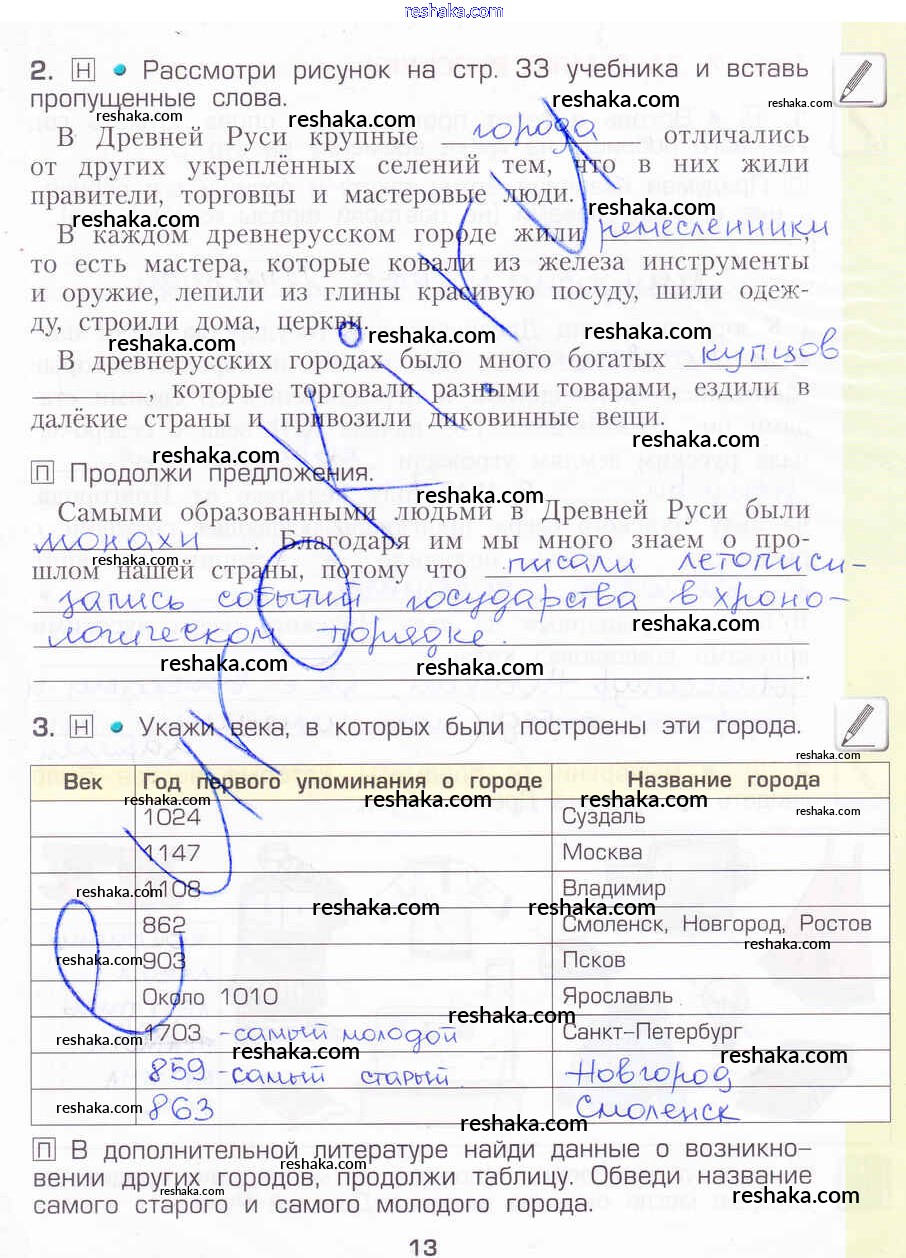 reshaka.com
2. Н • Рассмотри рисунок на стр. 33 учебника и вставь
reshaka.com
пропущенные слова.
reshaka.com
В Древней Руси крупные города отличались
от других укреплённых селений тем, что в них жили
правители, торговцы и мастеровые люди.
reshaka.com reshaka.com
В каждом древнерусском городе жили ремесленники,
то есть мастера, которые ковали из железа инструменты
и оружие, лепили из глины красивую посуду, шили одеж-
ду, строили дома, церкви.
reshaka.com reshaka.com
В древнерусских городах было много богатых купцов
, которые торговали разными товарами, ездили в
далёкие страны и привозили диковинные вещи.
reshaka.com reshaka.com
П Продолжи предложения.
reshaka.com
Самыми образованными людьми в Древней Руси были
монахи. Благодаря им мы много знаем о про-
reshaka.com
шлом нашей страны, потому что писали летописи-
запись событий государства в хроно-
reshaka.com
логическом порядке.
reshaka.com reshaka.com
.
3. Н • Укажи века, в которых были построены эти города.
reshaka.com
Век Год первого упоминания о городе Название города
reshaka.com reshaka.com reshaka.com reshaka.com
1024 Суздаль
1147 Москва
reshaka.com
1108 Владимир
reshaka.com reshaka.com
862 Смоленск, Новгород, Ростов
reshaka.com
903 Псков
reshaka.com
Около 1010 Ярославль
reshaka.com
1703 - самый молодой Санкт-Петербург
reshaka.com reshaka.com reshaka.com
859 - самый старый. Новгород
863 Смоленск
reshaka.com reshaka.com
П В дополнительной литературе найди данные о возникно-
reshaka.com
вении других городов, продолжи таблицу. Обведи название
reshaka.com reshaka.com
самого старого и самого молодого города.
13